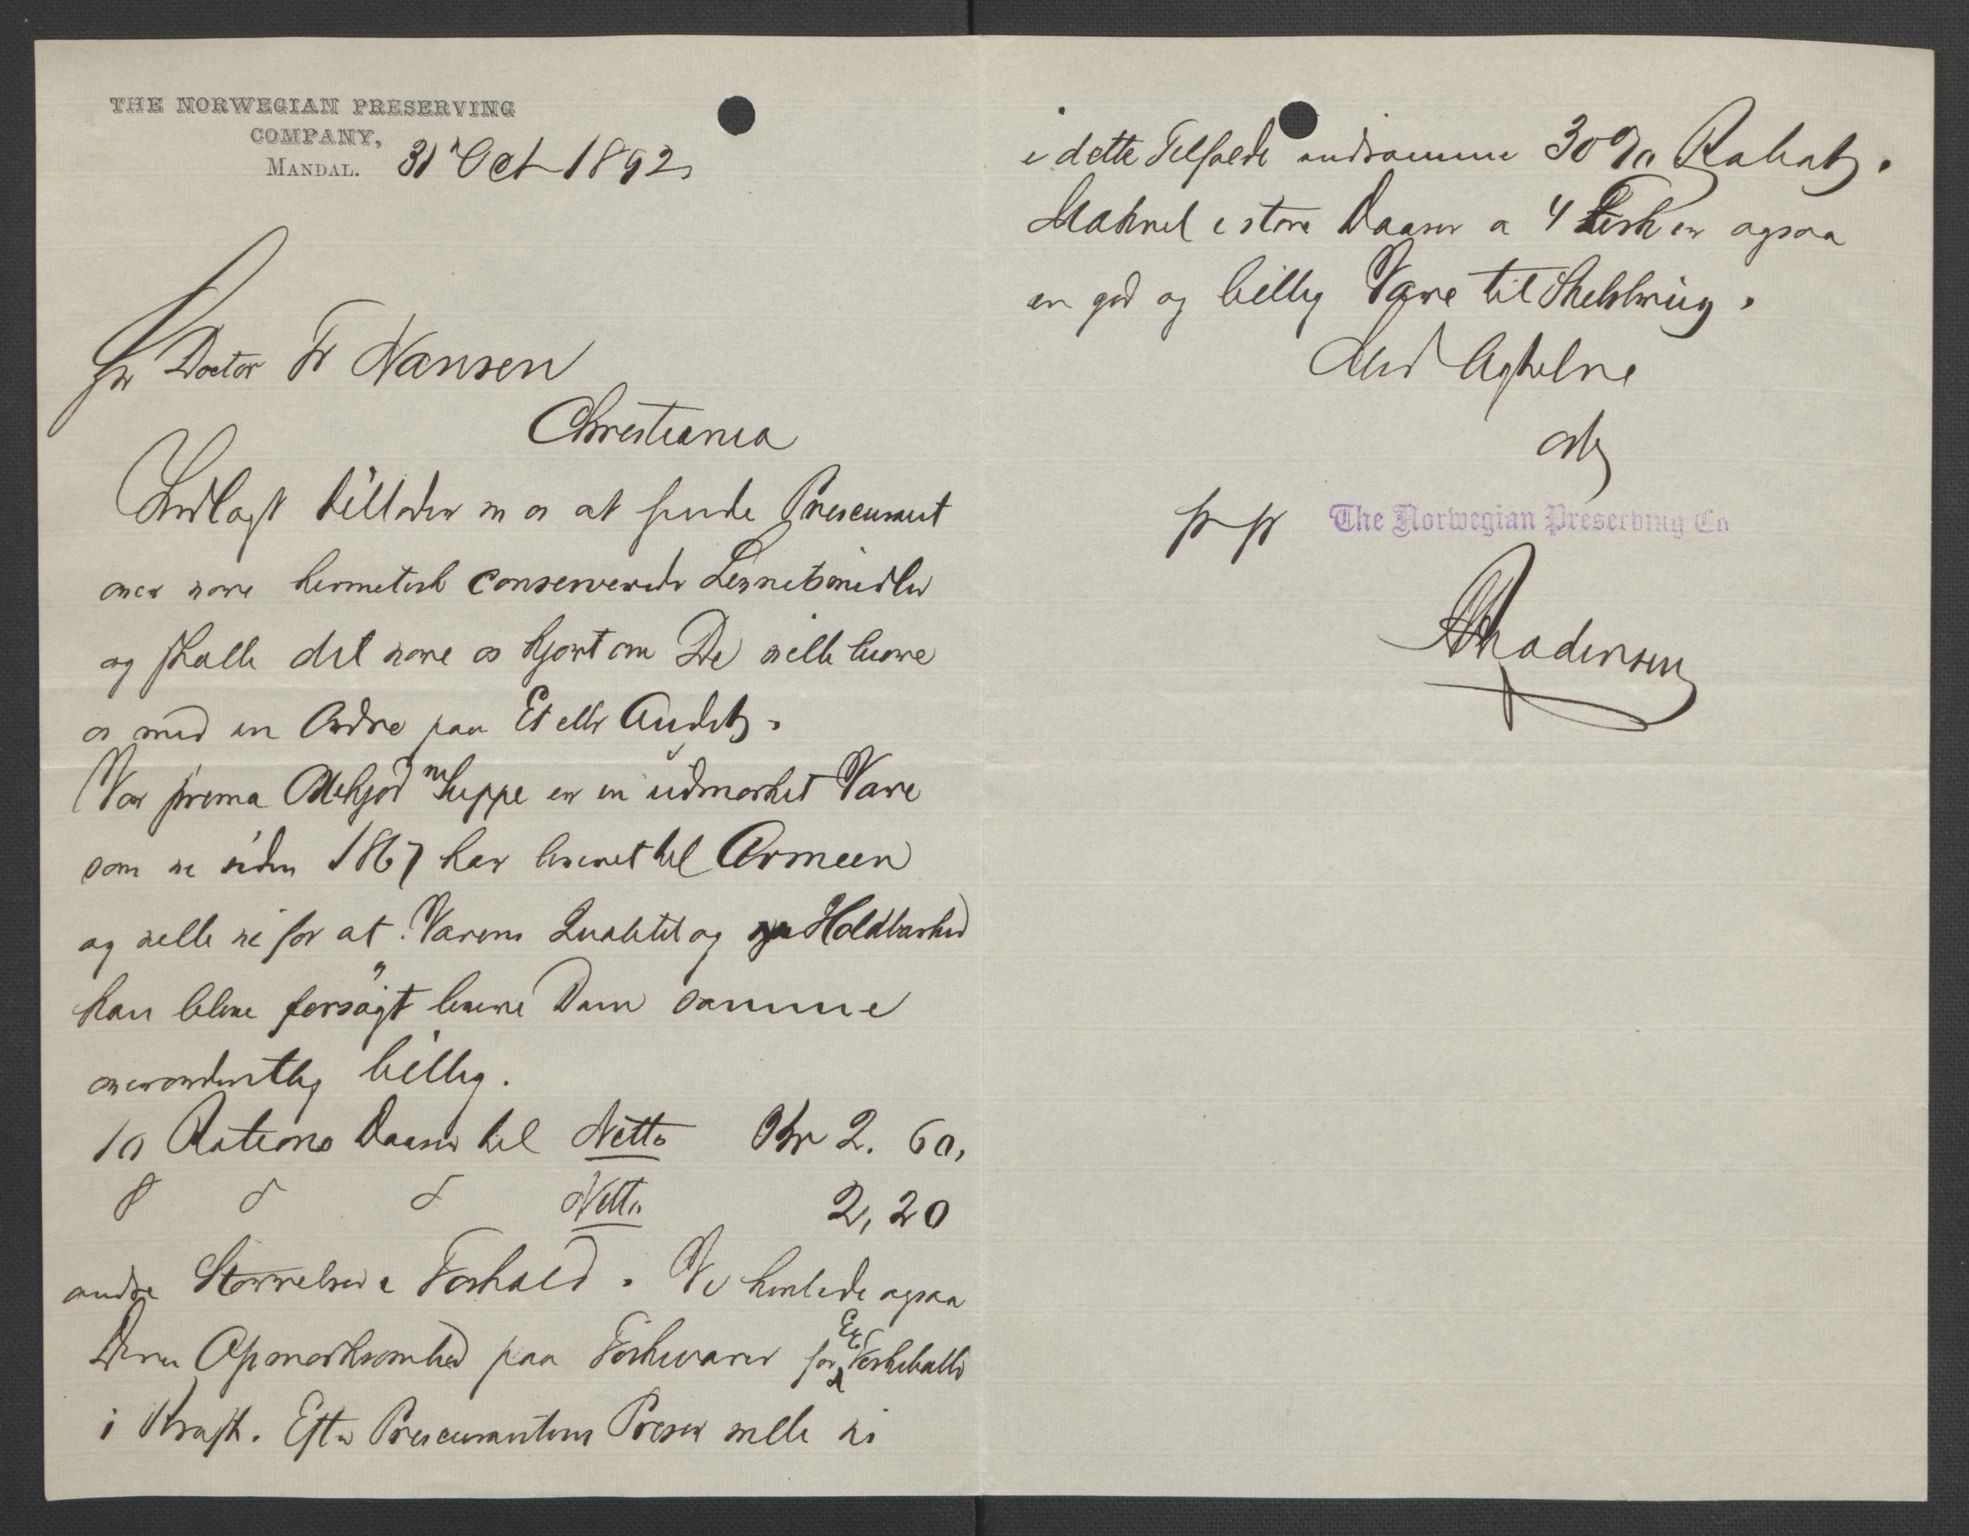 THE NORWEGIAN PRESERVING
COMPANY,
MANDAL. 31 Oct 1892
Hr Doctor Fr Nansen
Christiania
Indlagt tillader vi os at sende Priscurant
over vore hermetisk conserverede Levnetsmidler
og skulle det være os kjært om De vilde beære
os med en Ordre paa Et eller Andet.
Vor prima Oxekjød m Suppe er en udmærket Vare
som vi siden 1867 har leveret til Armeen
og ville vi for at Varens Qualitet og Holdbarhed
kan blive forsøgt levere Dem samme
overordentlig billig.
10 Rations Daaser til Netto Kr 2. 60,
8 d d Netto 2, 20
andre Størrelser i Forhold. Vi henlede ogsaa
Deres Opmærksomhed paa Fiskevarer for Ex Fiskeboller
i Kraft. Efter Priscurantens Priser ville vi
i dette Tilfælde indrømme 30% Rabat.
Makrel i store Daaser a 4 Fisk er ogsaa
en god og billig Vare til Skibsbrug.
Med Agtelse
pr pr The Norwegian Preserving Co